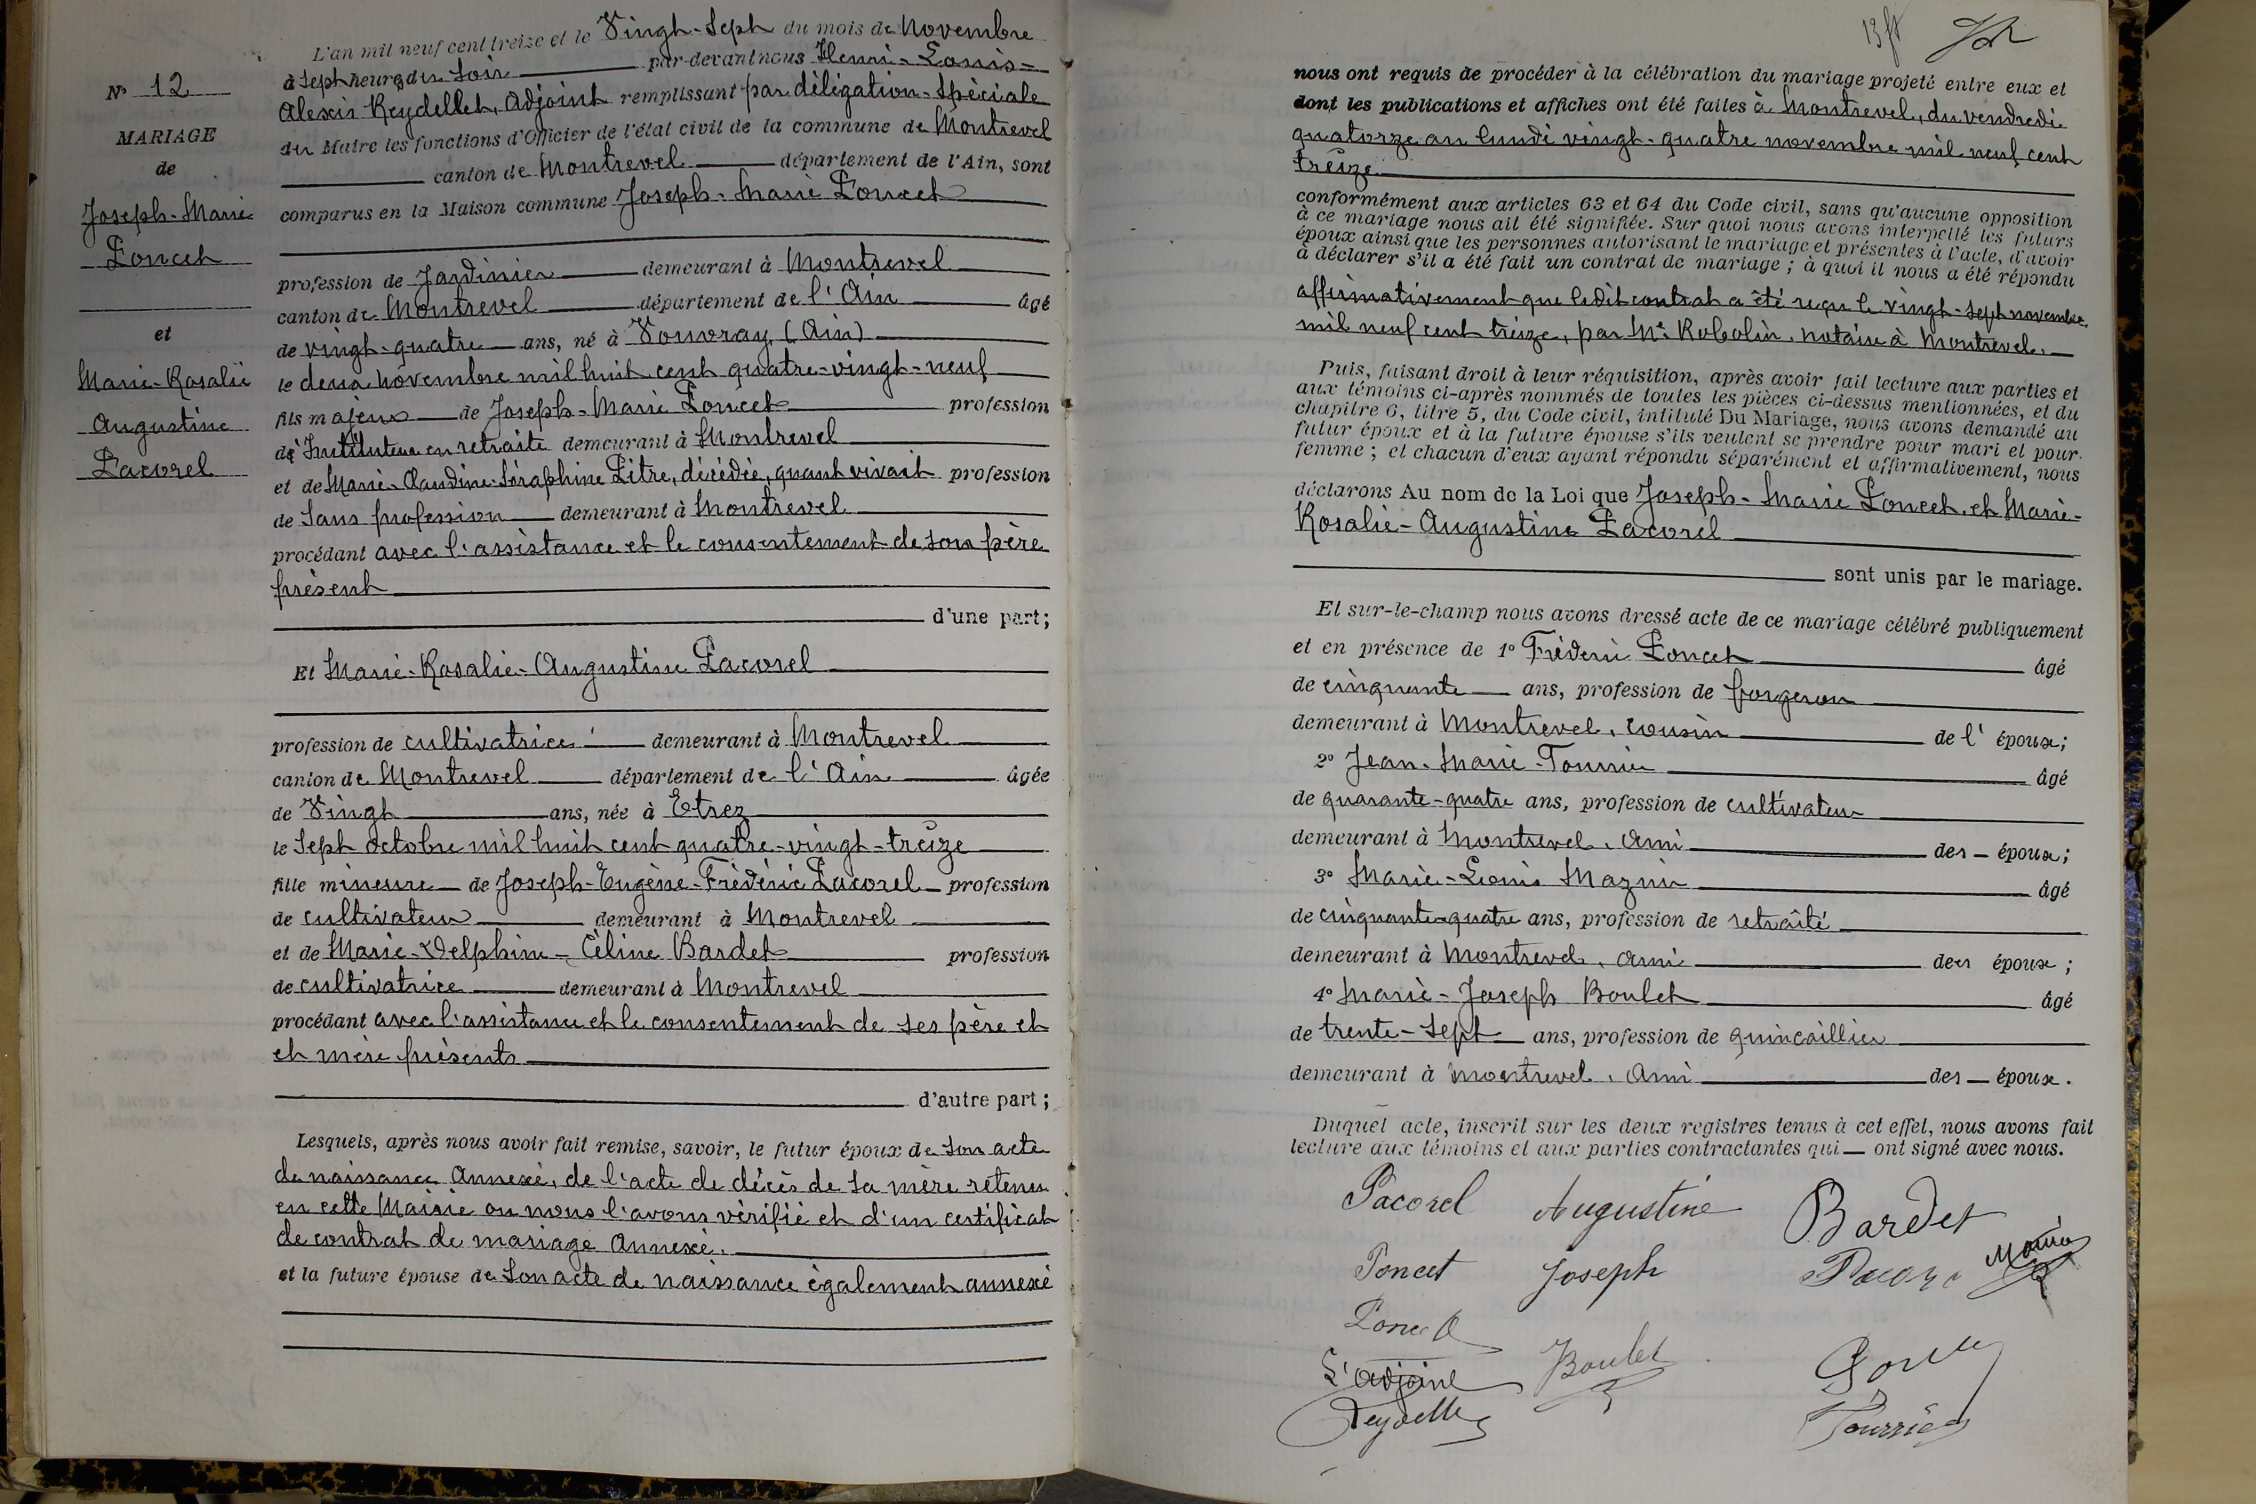 L'an mil neuf cent treize et le Vingt-Sept du mois de Novembre
à Sept heures du Soir par-devant nous Henri-Louis-
Alexis Reydellet, Adjoint remplissant par délégation-Spéciale
du Maire les fonctions d'Officier de l'état civil de la commune de Montrevel
canton de Montrevel département de l'Ain, sont
comparus en la Maison commune Joseph-Marie Poncet
N° 12
MARIAGE
de
Joseph-Marie
Poncet
et
Marie-Rosalie
Augustine
Pacorel
profession de Jardinier demeurant à Montrevel
canton de Montrevel département de l'Ain âgé
de vingt-quatre ans, né à Vonvray (Ain)
le deux novembre mil huit cent quatre-vingt-neuf
fils majeur de Joseph-Marie Poncet profession
de Instituteur en retraite demeurant à Montrevel
et de Marie-Claudine-Séraphine Pitre, décédée, quant vivait profession
de Sans profession demeurant à Montrevel
procédant avec l'assistance et le consentement de son père
présent
d'une part;
Et Marie-Rosalie-Augustine Pacorel
profession de cultivatrice demeurant à Montrevel
canton de Montrevel département de l'Ain âgée
de Vingt ans, née à Etrez
le Sept octobre mil huit cent quatre-vingt-treize
fille mineure de Joseph-Eugène-Frédéric Pacorel profession
de cultivateur demeurant à Montrevel
et de Marie-Delphine-Céline Bardet profession
de cultivatrice demeurant à Montrevel
procédant avec l'assistance et le consentement de ses père et
et mère présents
d'autre part;
Lesquels, après nous avoir fait remise, savoir, le futur époux de Son acte
de naissance Annexé, de l'acte de décès de sa mère retenu
en cette Mairie ou nous l'avons vérifié et d'un certificat
de contrat de mariage Annexé.
et la future épouse de Son acte de naissance également annexé
nous ont requis de procéder à la célébration du mariage projeté entre eux et
dont les publications et affiches ont été faites à Montrevel, du vendredi
quatorze au lundi vingt-quatre novembre mil neuf cent
treize
conformément aux articles 63 et 64 du Code civil, sans qu'aucune opposition
à ce mariage nous ait été signifiée. Sur quoi nous avons interpellé les futurs
époux ainsi que les personnes autorisant le mariage et présentes à l'acte, d'avoir
à déclarer s'il a été fait un contrat de mariage ; à quoi il nous a été répondu
affirmativement que ledit contrat a été reçu le vingt-sept novembre
mil neuf cent treize, par Me Robolin, notaire à Montrevel.
Puis, faisant droit à leur réquisition, après avoir fait lecture aux parties et
aux témoins ci-après nommés de toutes les pièces ci-dessus mentionnées, et du
chapitre 6, titre 5, du Code civil, intitulé Du Mariage, nous avons demandé au
futur époux et à la future épouse s'ils veulent se prendre pour mari et pour
femme ; et chacun d'eux ayant répondu séparément et affirmativement, nous
déclarons Au nom de la Loi que Joseph-Marie Poncet, et Marie-
Rosalie-Augustine Pacorel
sont unis par le mariage.
Et sur-le-champ nous avons dressé acte de ce mariage célébré publiquement
et en présence de 1° Fréderic Poncet âgé
de cinquante ans, profession de forgeron
demeurant à Montrevel, cousin de l'époux;
2° Jean-Marie-Tournier âgé
de quarante-quatre ans, profession de cultivateur
demeurant à Montrevel, Ami des époux;
3° Marie-Louis Maznin âgé
de cinquante-quatre ans, profession de retraité
demeurant à Montrevel, ami des époux ;
4° Marie-Joseph Boulet âgé
de trente-sept ans, profession de quincaillier
demeurant à Montrevel, Ami des époux.
Duquel acte, inscrit sur les deux registres tenus à cet effet, nous avons fait
lecture aux témoins et aux parties contractantes qui ont signé avec nous.
Pacorel Augustine Bardet
Poncet Joseph
Poncet
L'adjoint Boulet
Reydellet